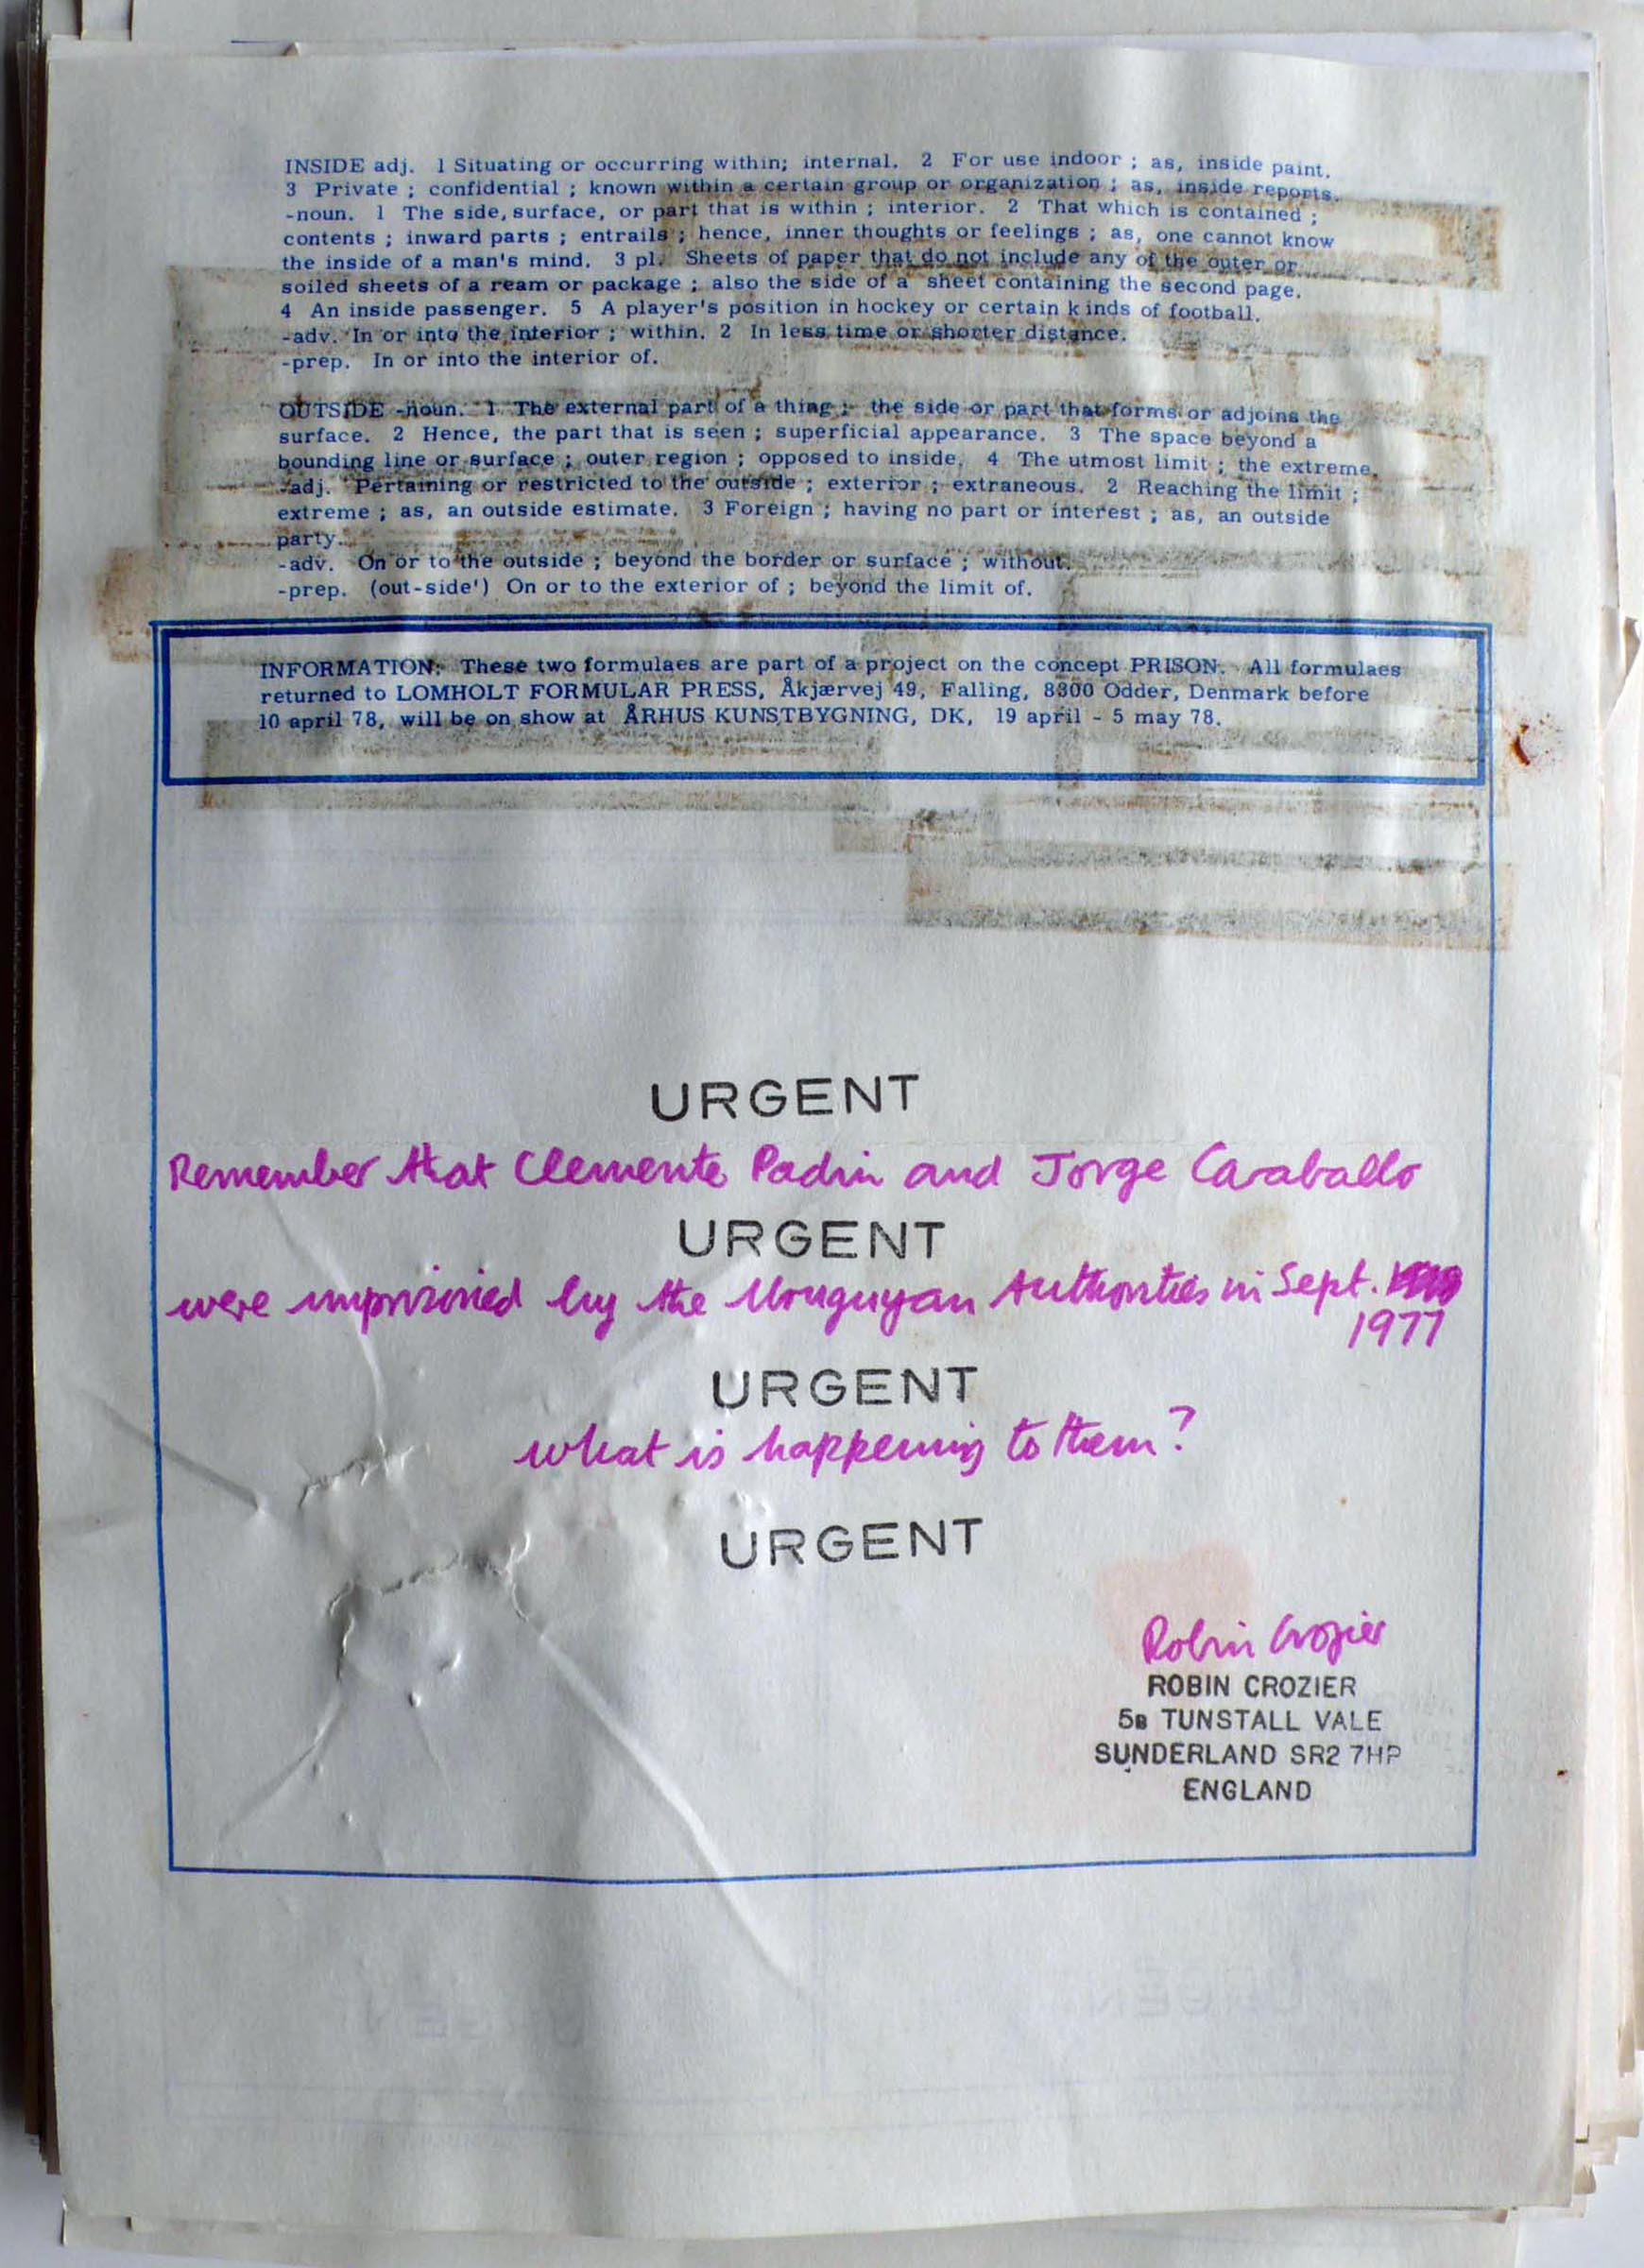 INSIDE adj. 1 Situating or occurring within; internal. 2 For use indoor ; as, inside paint.
3 Private ; confidential ; known within a certain group or organization ; as, inside reports.
-noun. 1 The side, surface, or part that is within ; interior. 2 That which is contained ;
contents ; inward parts ; entrails ; hence, inner thoughts or feelings ; as, one cannot know
the inside of a man's mind. 3 pl. Sheets of paper that do not include any of the outer or
soiled sheets of a ream or package ; also the side of a sheet containing the second page.
4 An inside passenger. 5 A player's position in hockey or certain kinds of football.
-adv. In or into the interior ; within. 2 In less time or shorter distance.
-prep. In or into the interior of.
OUTSIDE -noun. 1 The external part of a thing ; the side or part that forms or adjoins the
surface. 2 Hence, the part that is seen ; superficial appearance. 3 The space beyond a
bounding line or surface ; outer region ; opposed to inside. 4 The utmost limit ; the extreme.
-adj. Pertaining or restricted to the outside ; exterior ; extraneous. 2 Reaching the limit ;
extreme ; as, an outside estimate. 3 Foreign ; having no part or interest ; as, an outside
party.
-adv. On or to the outside ; beyond the border or surface ; without.
-prep. (out-side') On or to the exterior of ; beyond the limit of.
INFORMATION: These two formulaes are part of a project on the concept PRISON. All formulaes
returned to LOMHOLT FORMULAR PRESS, Åkjærvej 49, Falling, 8300 Odder, Denmark before
10 april 78, will be on show at ÅRHUS KUNSTBYGNING, DK, 19 april - 5 may 78.
URGENT
Remember that Clemente Padin and Jorge Caraballo
URGENT
were imprisioned by the Uruguyan Authorities in Sept.
1977
URGENT
what is happening to them?
URGENT
Robin Crozier
ROBIN CROZIER
5B TUNSTALL VALE
SUNDERLAND SR2 7HP
ENGLAND